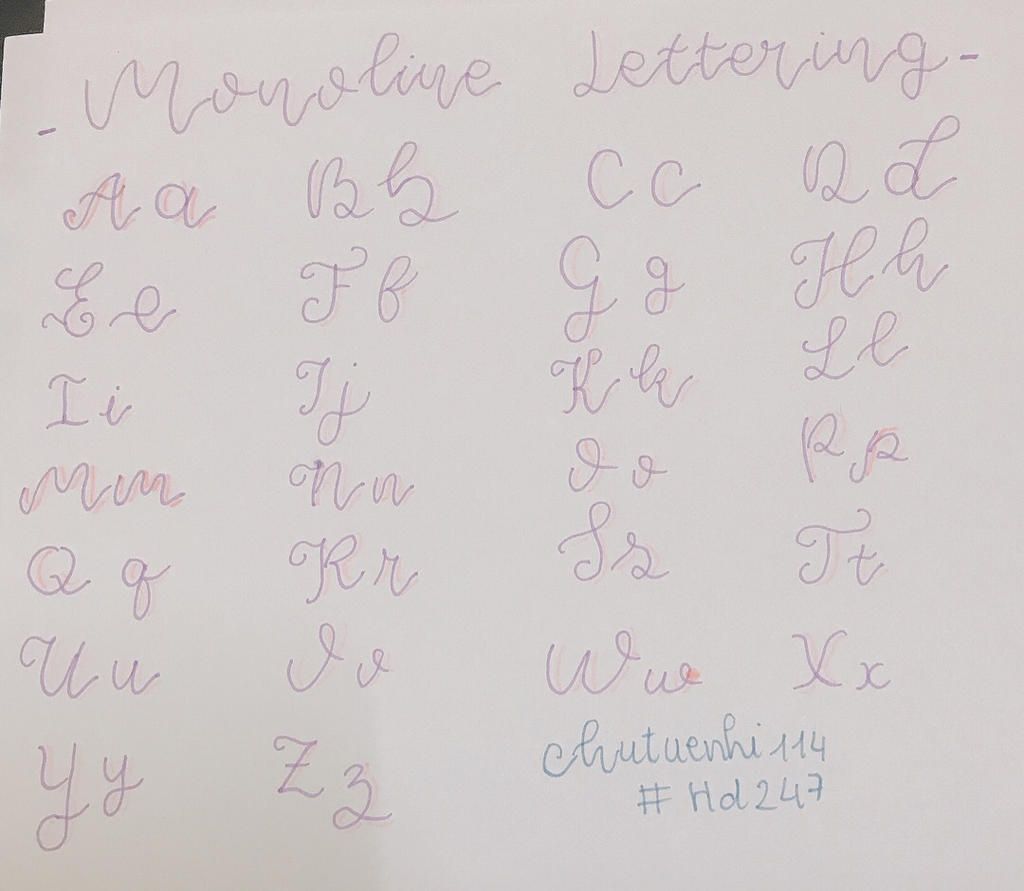 - Monoline Lettering -
A a B b C c D d
E e F f G g H h
I i J j K k L l
M m N n O o P p
Q q R r S s T t
U u V v W w X x
Y y Z z chutuenhi114
# Hd247